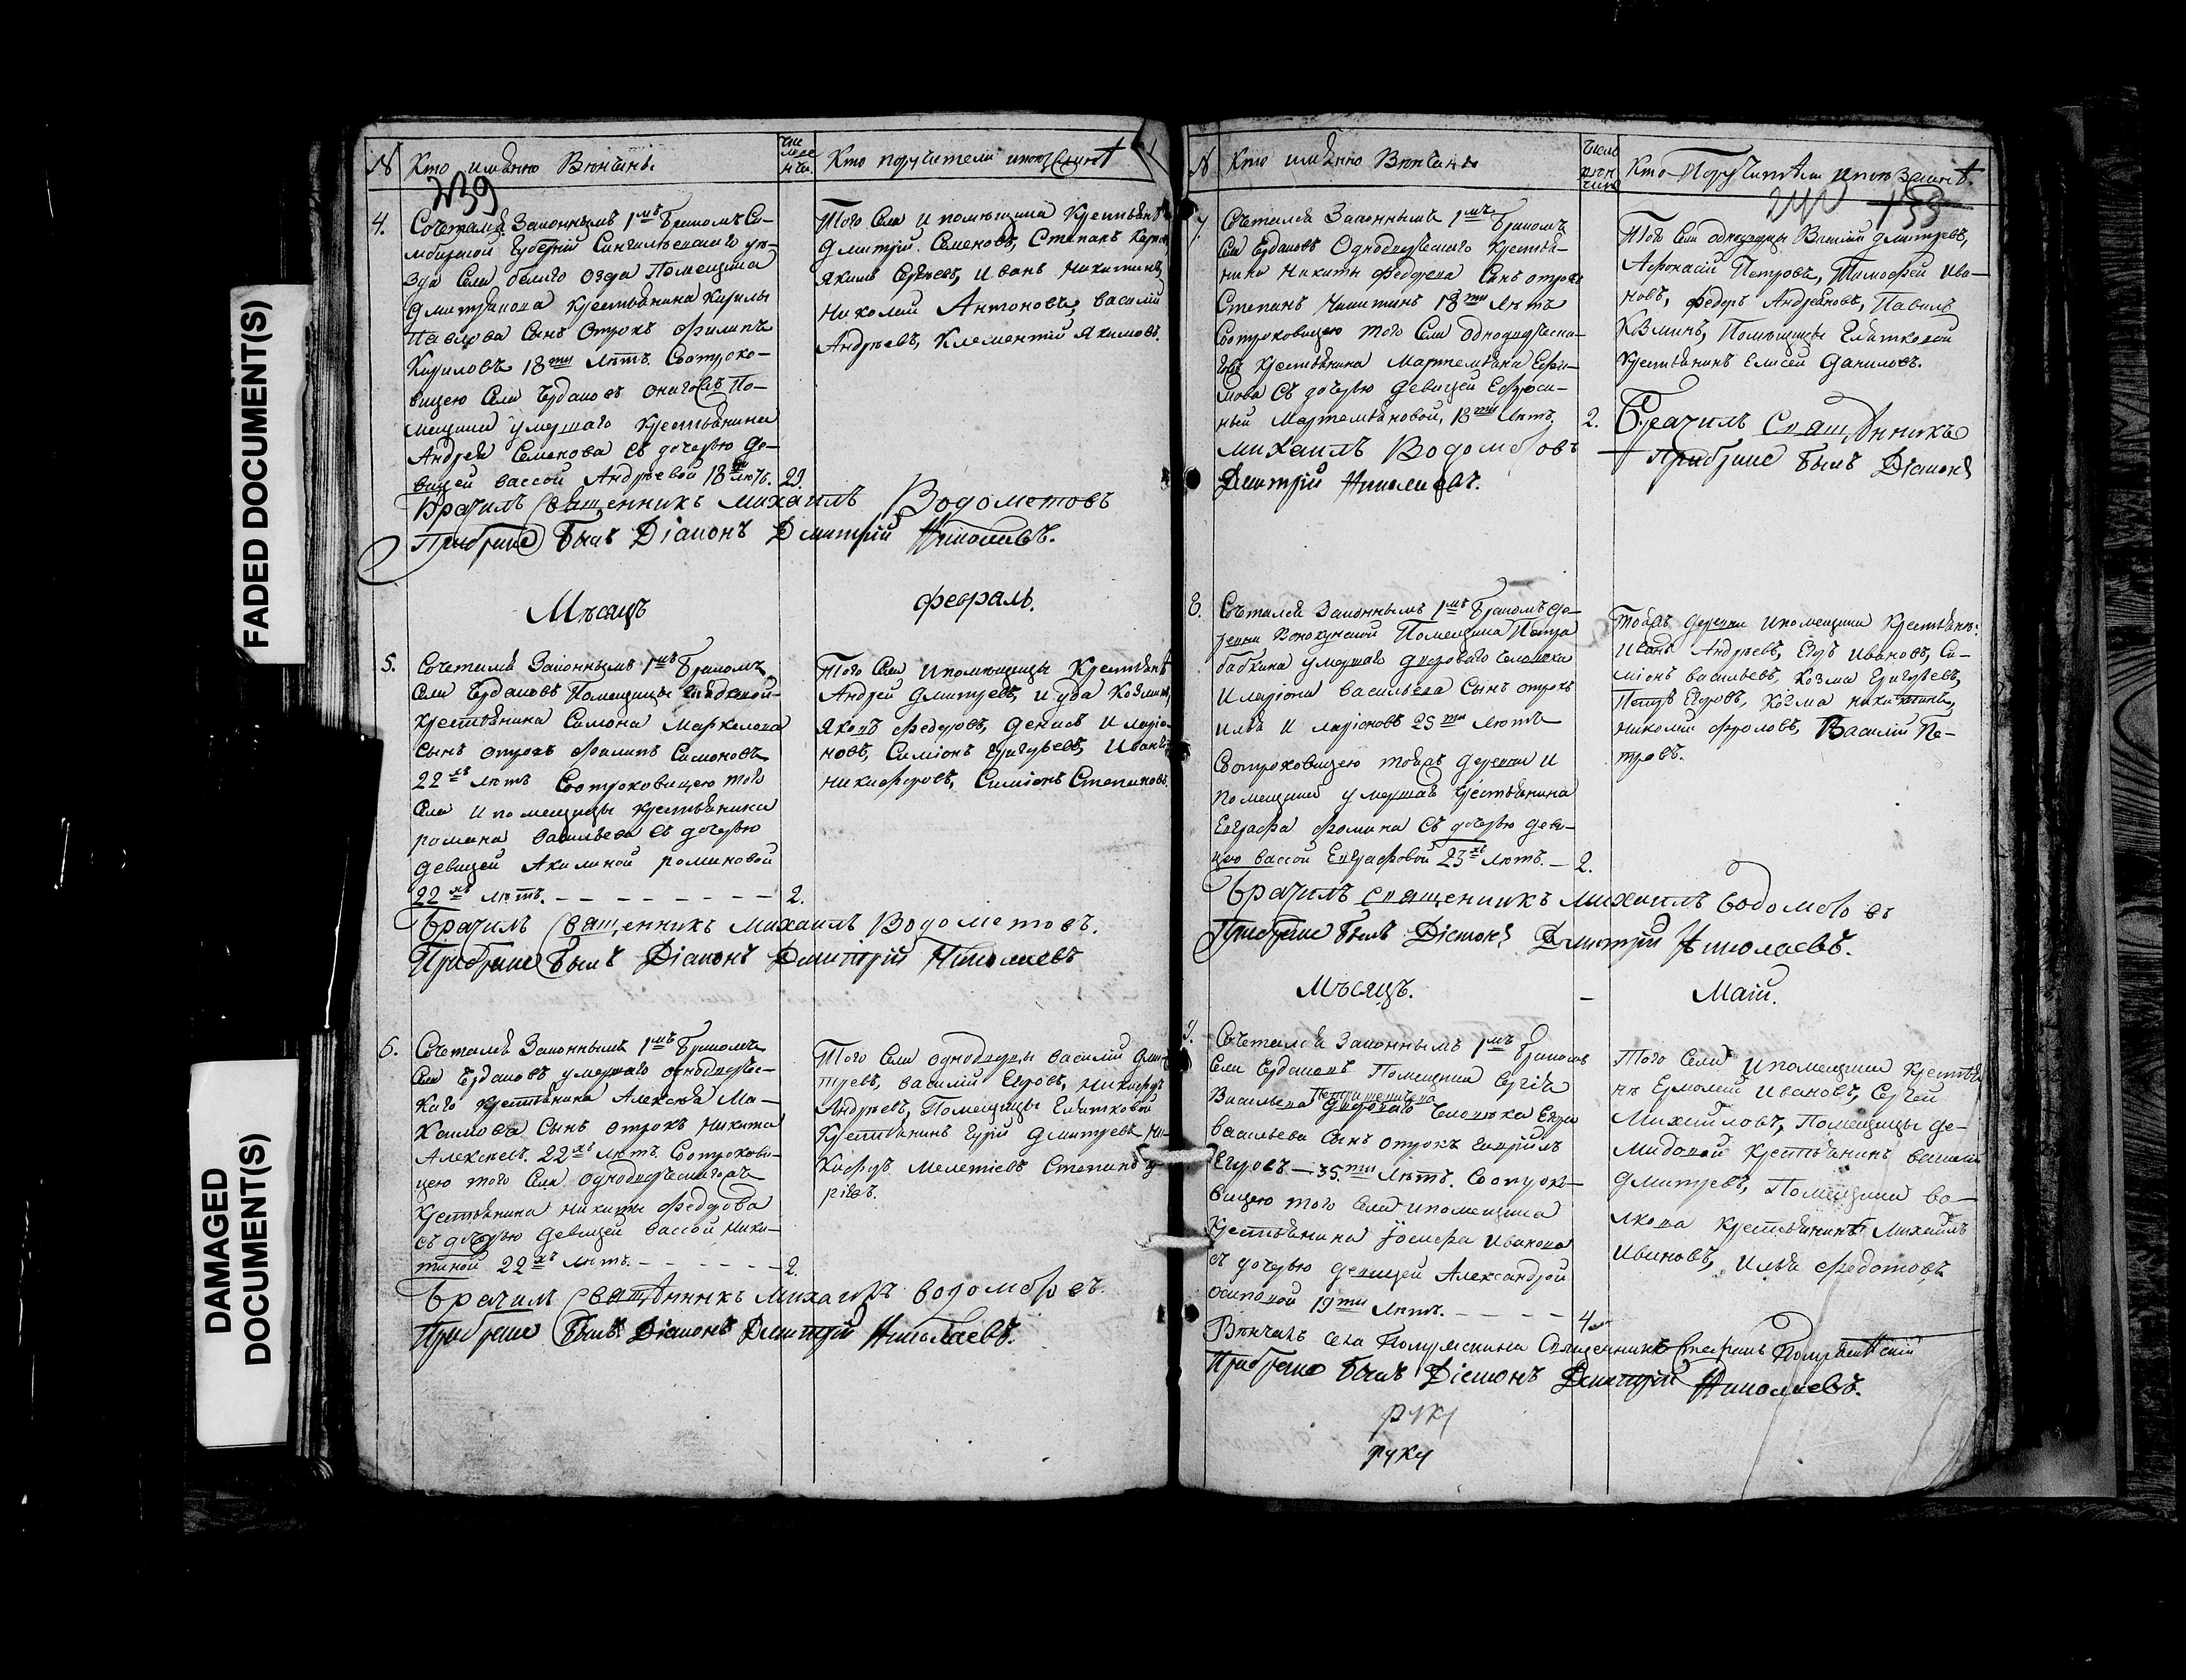 FADED DOCUMENT(S)
DAMAGED
DOCUMENT(S)
№ Кто имянно Вѣнчанъ.
Кто поручители
239
4. Сочетался Законнымъ 1мъ Бракомъ Си-
мбирской Губерніи Сингилѣевскаго уѣ-
зда Села Помещика
Дмитріева Крестьянина Кирилы
Павлова Сынъ Отрокъ Филипъ
Кириловъ 18ти Лѣтъ. Сотроко-
вицею Села Ерданов По-
мещика умершаго Крестьянина
Андрея Семенова съ дочерью де-
вицей Вассой Андрѣевой 18ти лѣтъ. 29.
Того Села И помѣщика Крестьянѣ
Дмитрій Семеновъ, Степанъ
Якимъ Сергѣевъ, Иванъ Никитинъ,
Николай Антоновъ, Василій
Андрѣевъ, Клементій Якимовъ.
Брачилъ Священникъ Михаилъ Водометовъ
Прибраке былъ Діаконъ Дмитрій Николаевъ.
Мѣсяцъ Февраль.
5. Сочетался Законнымъ 1мъ Бракомъ
Села Ердановъ Помещицы
Крестьянина Симона Маркелова
Сынъ отрокъ Филипъ Симоновъ
22хъ лѣтъ Сотроковицею того
Села И помещицы крестьянина
романа Васильева съ дочерью
девицей Акилиной романовой
22хъ лѣтъ. – – – – – – – 2.
Того Села Ипомѣщицы Крестьянѣ
Андрей Дмитревъ, Иуда Козминъ,
Яковъ Федоровъ, Денисъ Иларіо-
новъ, Симіонъ Григорьевъ, Иванъ
Никифоровъ, Симіонъ Степановъ.
Брачилъ Священникъ Михаилъ Водометовъ.
Прибраке былъ Діаконъ Дмитрій Николаевъ
6. Сочетался Законнымъ 1мъ Бракомъ
Села Ердановъ умершаго однодворче-
каго Крестьянина Алексѣя Ма-
Сынъ отрокъ Никита
Алексѣевъ. 22хъ лѣтъ. Сотрокови-
цею того Села
Крестьянина Никиты Федорова
съ дочерью девицей Вассой Ники-
тиной 22хъ лѣтъ. – – – – – – 2.
Того Села однодворцы Василій Дми-
тревъ, Василій Егоровъ, Никифоръ
Андрѣевъ, Помещицы Глѣтковой
Крестьянинъ Гурій Дмитревъ Ни-
Кифоръ Мелетіевъ Степанъ
Брачилъ Священникъ Михаилъ Водометовъ.
Прибраке былъ Діаконъ Дмитрій Николаевъ.
№ Кто имянно Вѣнчанъ
Кто Поручители
240 153
7. Сочетался Законнымъ 1мъ Бракомъ
Села Ердановъ Однодворческаго Крестья-
нина Никиты Федорова Сынъ отрокъ
Степанъ Никитинъ 18ти Лѣтъ
Сотроковицею того Села
Крестьянина Мартемьяна Ефи-
мова Съ дочерью девицей Ефроси-
ньей Мартемьяновой, 18ти Лѣтъ. 2.
Того Села однодворцы Василій Дмитревъ,
Афонасій Петровъ, Тимофей Ива-
новъ, Федоръ Андреяновъ, Павелъ
Козминъ, Помѣщицы Глѣтковой
Крестьянинъ Елисей Даниловъ.
Брачилъ Священникъ
Михаилъ Водометовъ
Прибраке былъ Діаконъ
Дмитрій Николаевъ.
8. Сочетался Законнымъ 1мъ Бракомъ де-
ревни Помещика Петра
Бабкина умершаго Дворового Человека
Иларіона Васильева Сынъ отрокъ
Илья Иларіоновъ 25ти Лѣтъ
Сотроковицею тойжъ деревни И
помещика умершаго крестьянина
Евграфа Фомина Съ дочерью деви-
цею Вассой Евграфовой 23хъ Лѣтъ. – 2.
Тойжъ деревни Ипомещика Крестьянѣ:
Иванъ Андрѣевъ, Егоръ Ивановъ, Си-
міонъ Васильевъ, Козма Григорьевъ,
Петръ Егоровъ, Козма Никитинъ,
Николай Фроловъ, Василій Пе-
тровъ.
Брачилъ Священникъ Михаилъ Водометовъ
Прибраке былъ Діаконъ Дмитрій Николаевъ.
Мѣсяцъ. – Маій.
9. Сочетался Законнымъ 1мъ Бракомъ
Села Ердановъ Помещика Сергѣя
Васильева Дворового Человѣка Егора
Васильева Сынъ отрокъ Гаврійлъ
Егоровъ – 35.ти Лѣтъ. Сотроко-
вицею того Села ипомещика
Крестьянина Іосифа Иванова
съ дочерью девицей Александрой
Осиповой 19ти Лѣтъ. – – – – 4
Того Села Ипомещика Крестья-
нъ Ермолай Ивановъ, Сергей
Михайловъ, Помещицы Де-
мидовой Крестьянинъ Василій
Дмитревъ, Помещика Во-
лкова Крестьянинъ Михайлъ
Ивановъ, Илья Федотовъ
Вѣнчалъ села Священникъ Стефанъ
Прибраке былъ Діаконъ Дмитрій Николаевъ.
руку
руку